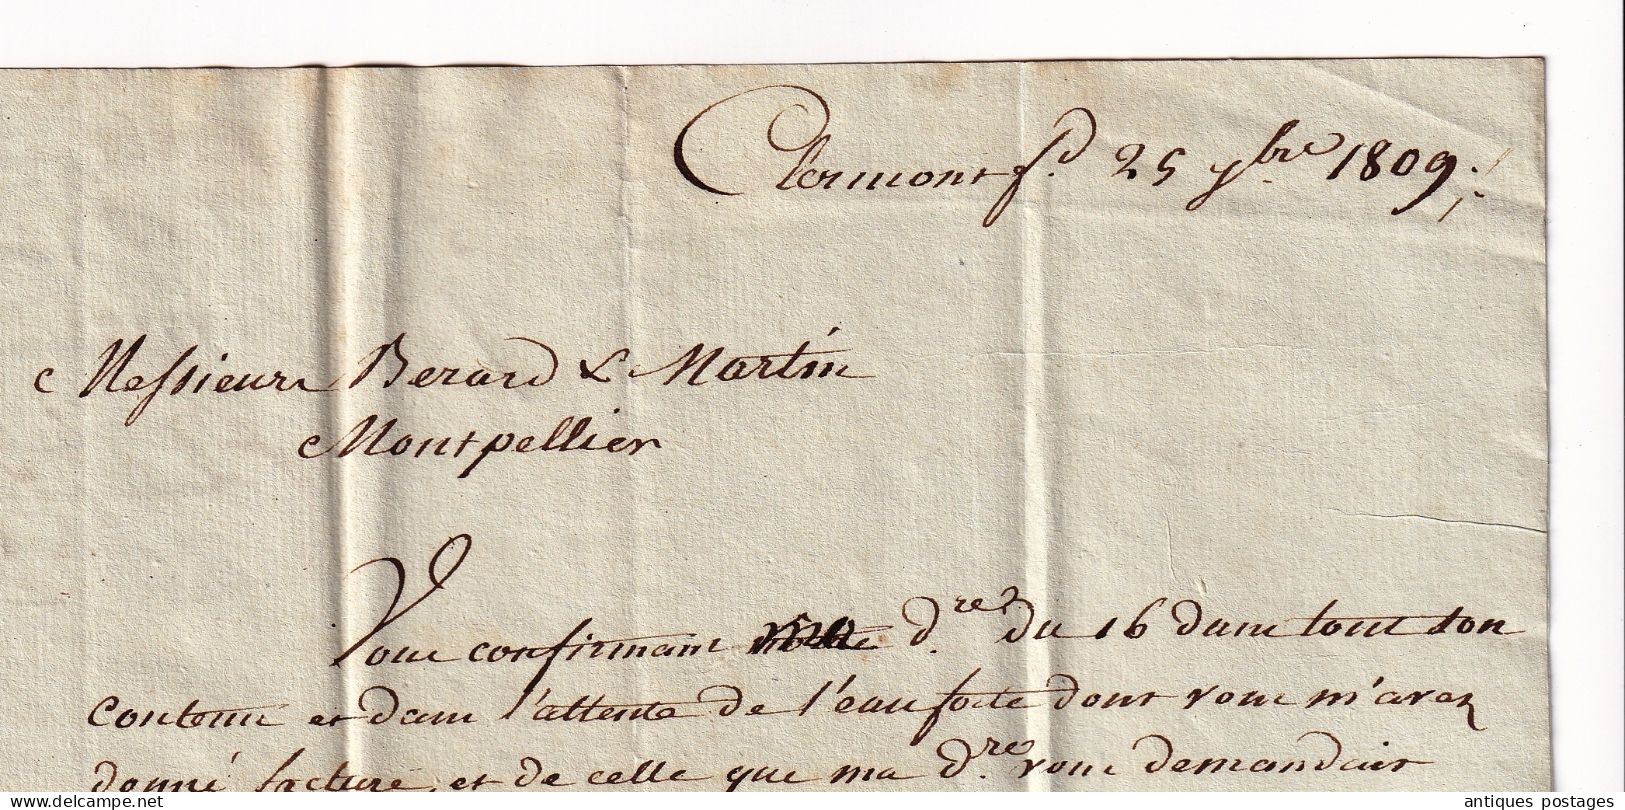 Clermont f.d 25 9bre 1809.
Messieurs Berard & Martin
Montpellier
Vous confirmant ma d.re du 16 dans tout son
contenu et dans l'attente de l'eau forte dont vous m'avez
donné facture, et de celle que ma d.re vous demandait
antiques postages